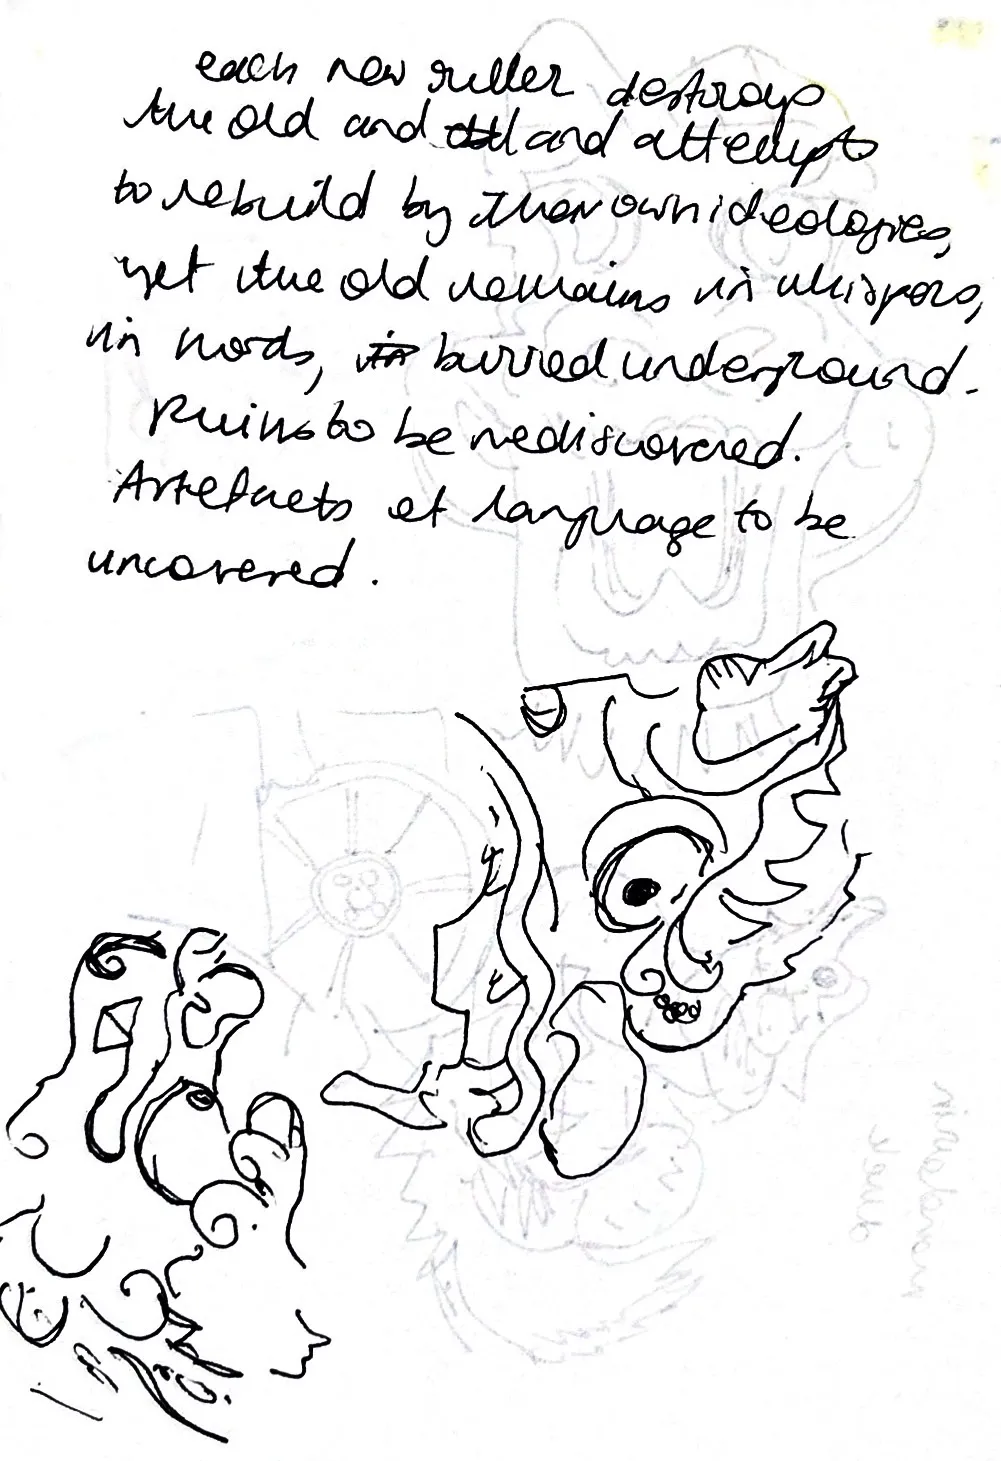 each new ruller destroys
the old and and attempts
to rebuild by ther own ideologies,
yet the old remains in whispers,
in words, burried underground.
Ruins to be rediscovered.
Artefacts of language to be
uncovered.